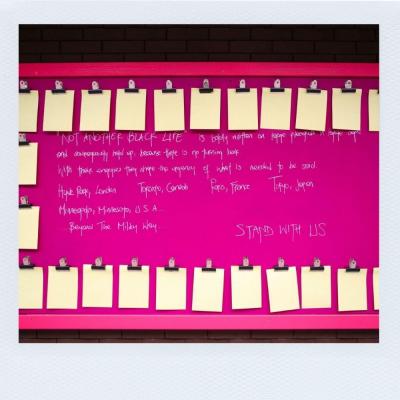 "NOT ANOTHER BLACK LIFE" is boldly written on large placards in large caps
and courageously held up, because there is no turning back
With their exposure they shape the urgency of what is needed to be said.
Hyde Park, London Toronto, Canada Paris, France Tokyo, Japan
Minneapolis, Minnesota, U.S.A...
...Beyond The Milky Way...
STAND WITH US